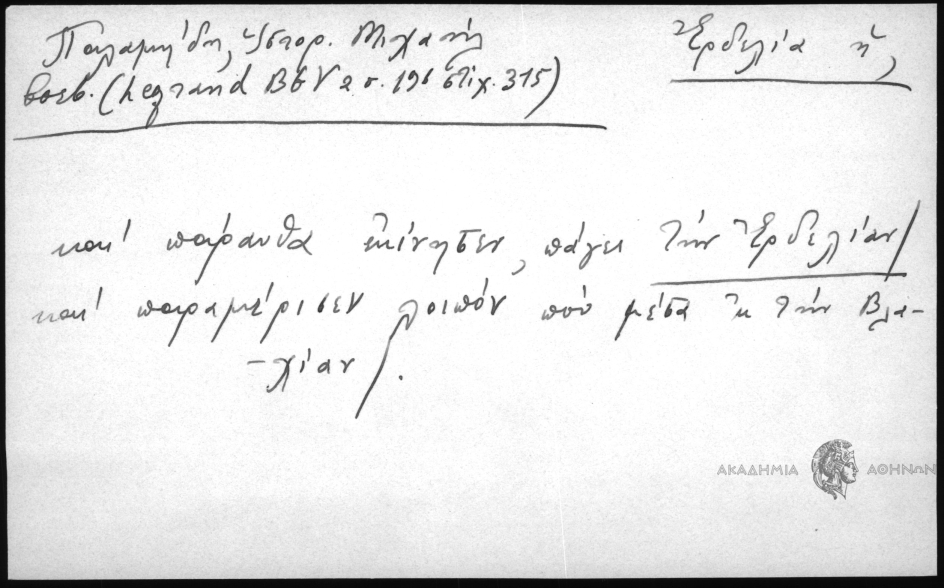 Παλαμήδη, Ἱστορ. Μιχαὴλ
βοεβ. (Legrand BGV 2 σ. 196 στίχ. 315)
Ἐρδελία ἡ,
καὶ πάραυθα ἐκίνησεν, πάγει τὴν Ἐρδελίαν/
καὶ παραμέρισεν λοιπὸν πὸ μέσα ἐκ τὴν Βλα-
-χίαν/.
ΑΚΑΔΗΜΙΑ ΑΘΗΝΩΝ